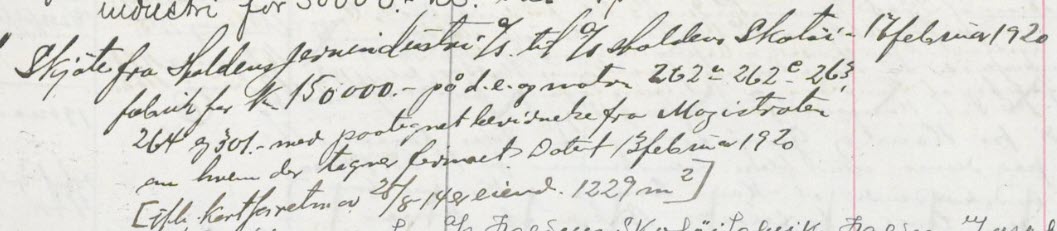 industri for 50000.- kr.
Skjöte fra Haldens Jernindustri A/S. til A/S Haldens Skotöi- 17 februar 1920
fabrik for Kr. 150000.- på d.e. g.notr. 262a 262e 263,
264 og 301.- med paategnet bevidnelse fra Magistraten
om hvem der tegner firmaet. Datet 13 februar 1920
[ifl. kartforretn. av 28/8-148 eiend. 1229 m2]
A/S Haldens Skotöifabrik